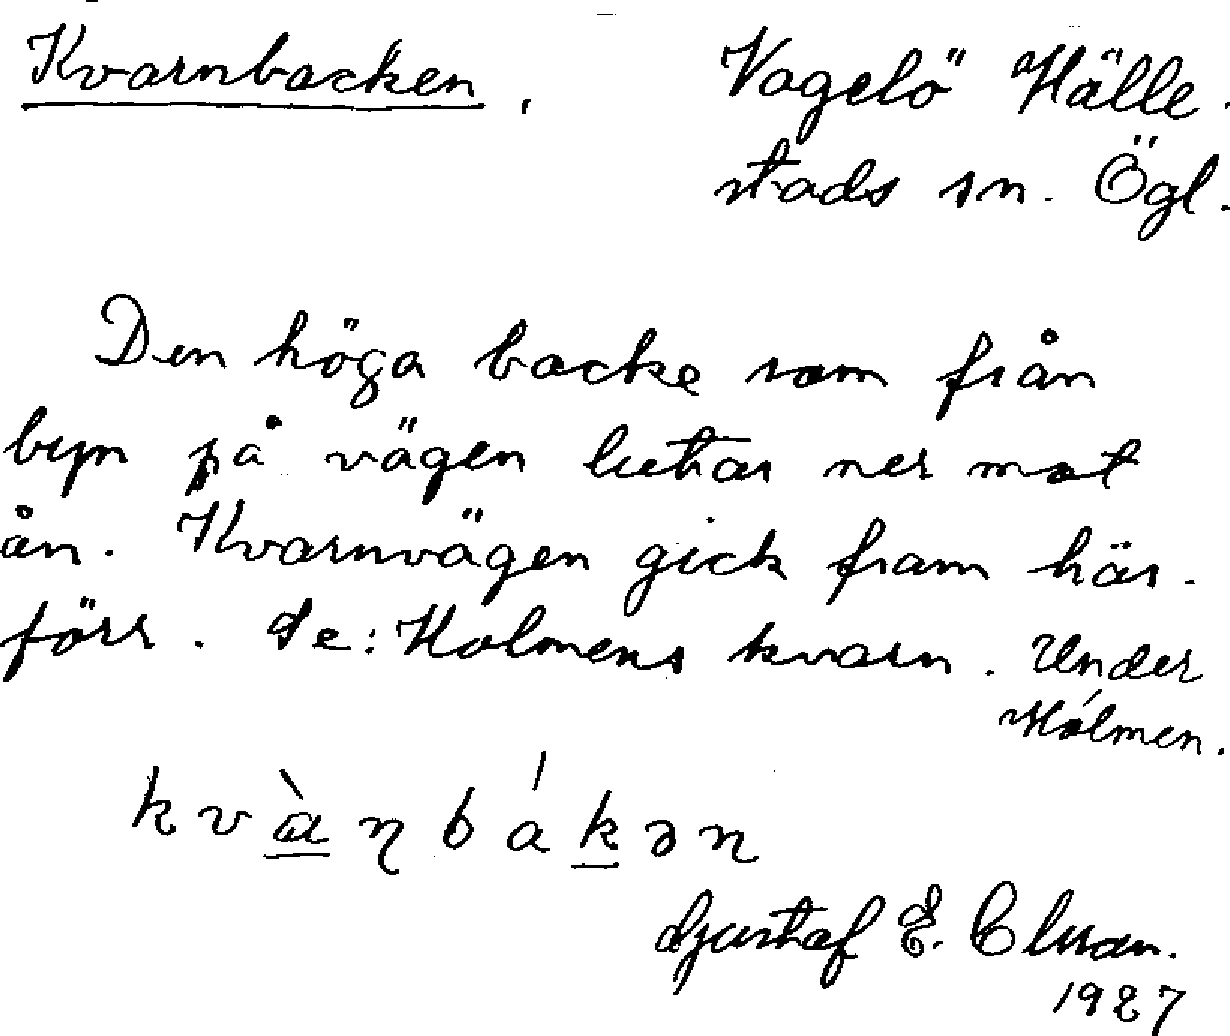 Kvarnbacken, Vagelö Hälle-
stads sn. Ögl.
Den höga backe som från
byn på vägen lutar ner mot
ån. Kvarnvägen gick fram här-
förr. Se: Holmens kvarn. Under
Hólmen.
kvànbákən
Gustaf E.
1927